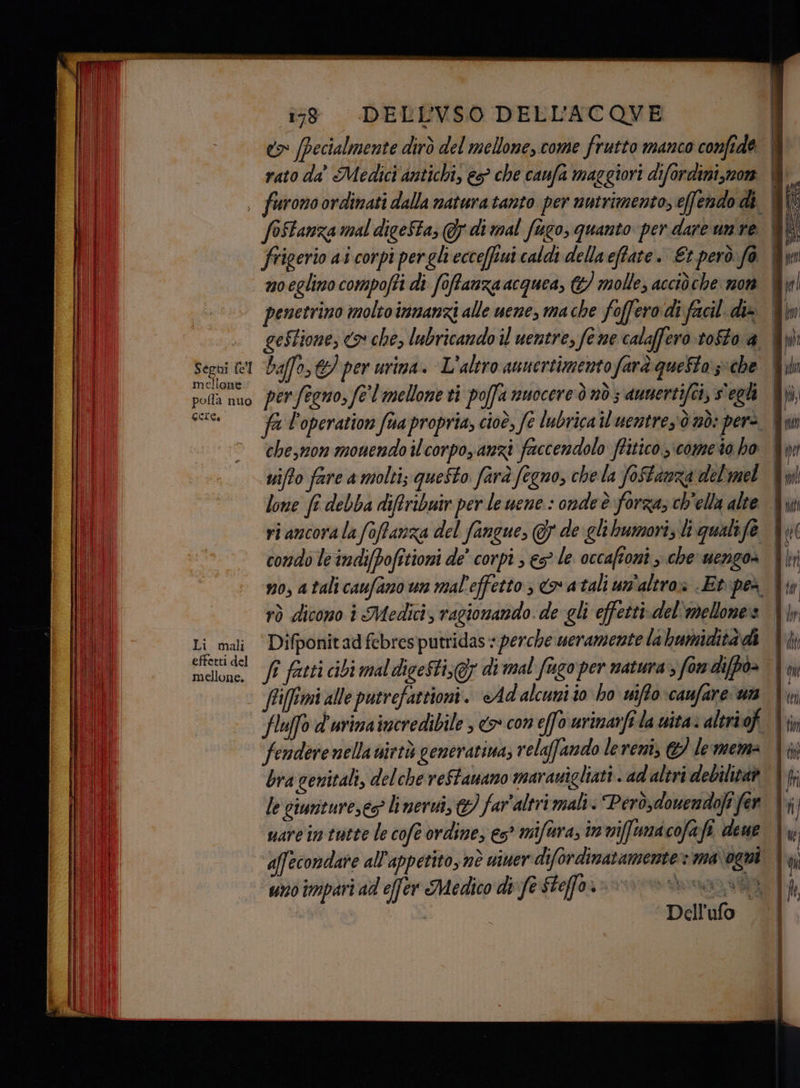 178 DELL'VSO DELL'ACQVE
& specialmente dirò del mellone, come frutto manco conside
rato da' Medici antichi, & che causa maggiori disordini, non
furono ordinati dalla natura tanto per nutrimento, essendo di
sostanza mal digesta, & di mal sugo, quanto per dare un re
frigerio a i corpi per gli eccessiui caldi della estate. Et però fo
no eglino composti di sostanza acquea, & molle, acciò che non
penetrino molto innanzi alle uene, ma che fossero di facil di=
gestione, & che, lubricando il uentre, se ne calassero tosto a
basso, & per urina. L'altro auuertimento sarà questo; che
Segni se'l
mellone
possa nuo
cere.
per segno, se'l mellone ti possa nuocere ò nò; auuertisci, s'egli
fa l'operation sua propria, cioè, se lubrica il uentre, ò nò: per=
che, non mouendo il corpo, anzi faccendolo stitico, come io ho
uisto fare a molti; questo sarà segno, che la sostanza del mel
lone si debba distribuir per le uene: onde è forza, ch'ella alte
ri ancora la sostanza del sangue, & de gli humori, li quali se
condo le indispositioni de' corpi, & le occasioni, che uengo=
no, a tali causano un mal'effetto, & a tali un'altro. Et pe=
rò dicono i Medici, ragionando de gli effetti del mellone:
Li mali
effetti del
mellone.
Disponit ad febres putridas: perche ueramente la humidità di
sì fatti cibi mal digesti, & di mal sugo per natura, son dispo=
stissimi alle putrefattioni. Ad alcuni io ho uisto causare un
flusso d'urina incredibile, & con esso urinarsi la uita: altri of
fendere nella uirtù generatiua, relassando le reni, & le mem=
bra genitali, del che restauano marauigliati. ad altri debilitar
le giunture, & li nerui, & far'altri mali. Però, douendosi ser
uare in tutte le cose ordine, & misura, in nissuna cosa si deue
assecondare all'appetito, nè uiuer disordinatamente: ma ogni
uno impari ad esser Medico di se stesso.
Dell'uso